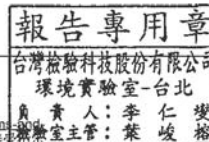 報告專用章
台灣檢驗科技股份有限公司
環境實驗室-台北
負責人：李仁燮
實驗室主管：葉峻榕